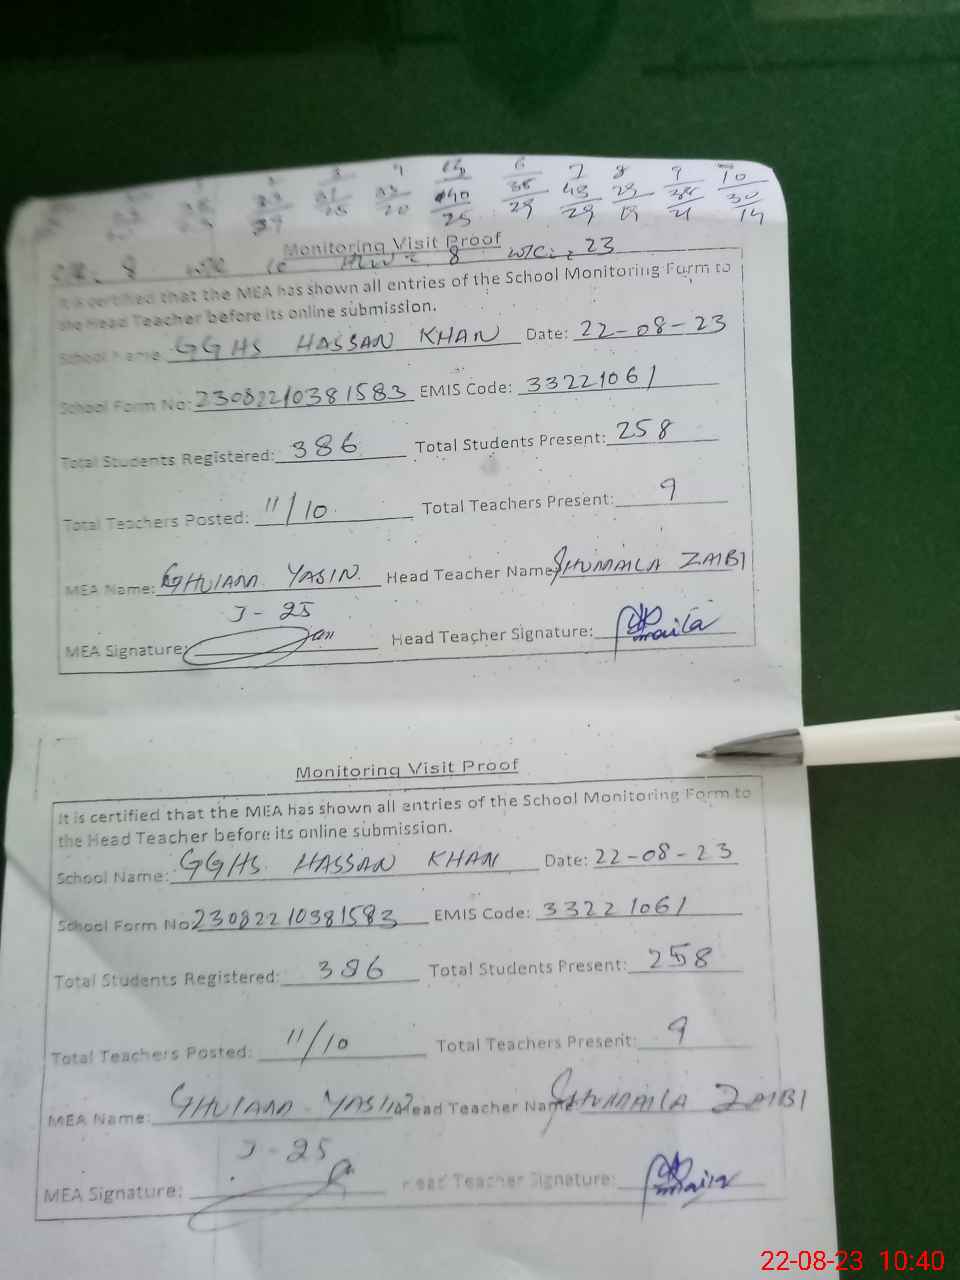 3 4 15 6 7 8 9 10
31 33 40 38 43 29 38 30
25 20 25 29 29 19 21 14
Monitoring Visit Proof
8 W/C 10 8 W/C = 23
It is certified that the MEA has shown all entries of the School Monitoring Form to
the Head Teacher before its online submission.
School Name: GGHS HASSAN KHAN Date: 22-08-23
School Form No: 23082210381583 EMIS Code: 33221061
Total Students Registered: 386 Total Students Present: 258
Total Teachers Posted: 11/10 Total Teachers Present: 9
MEA Name: GHULAM YASIN Head Teacher Name SHUMAILA ZAIBI
J-25
MEA Signature: Head Teacher Signature: Shumaila
Monitoring Visit Proof
It is certified that the MEA has shown all entries of the School Monitoring Form to
the Head Teacher before its online submission.
School Name: GGHS HASSAN KHAN Date: 22-08-23
School Form No 23082210381583 EMIS Code: 33221061
Total Students Registered: 386 Total Students Present: 258
Total Teachers Posted: 11/10 Total Teachers Present: 9
MEA Name: GHULAM YASIN Head Teacher Name SHUMAILA ZAIBI
J-25
MEA Signature: Head Teacher Signature: Shumaila
22-08-23 10:40